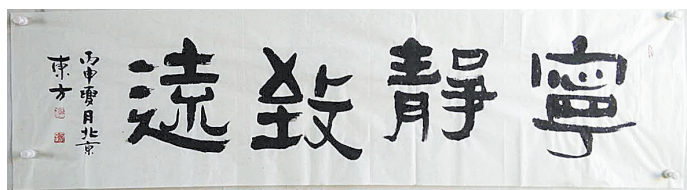 寧靜致遠
丙申夏月北京
東方